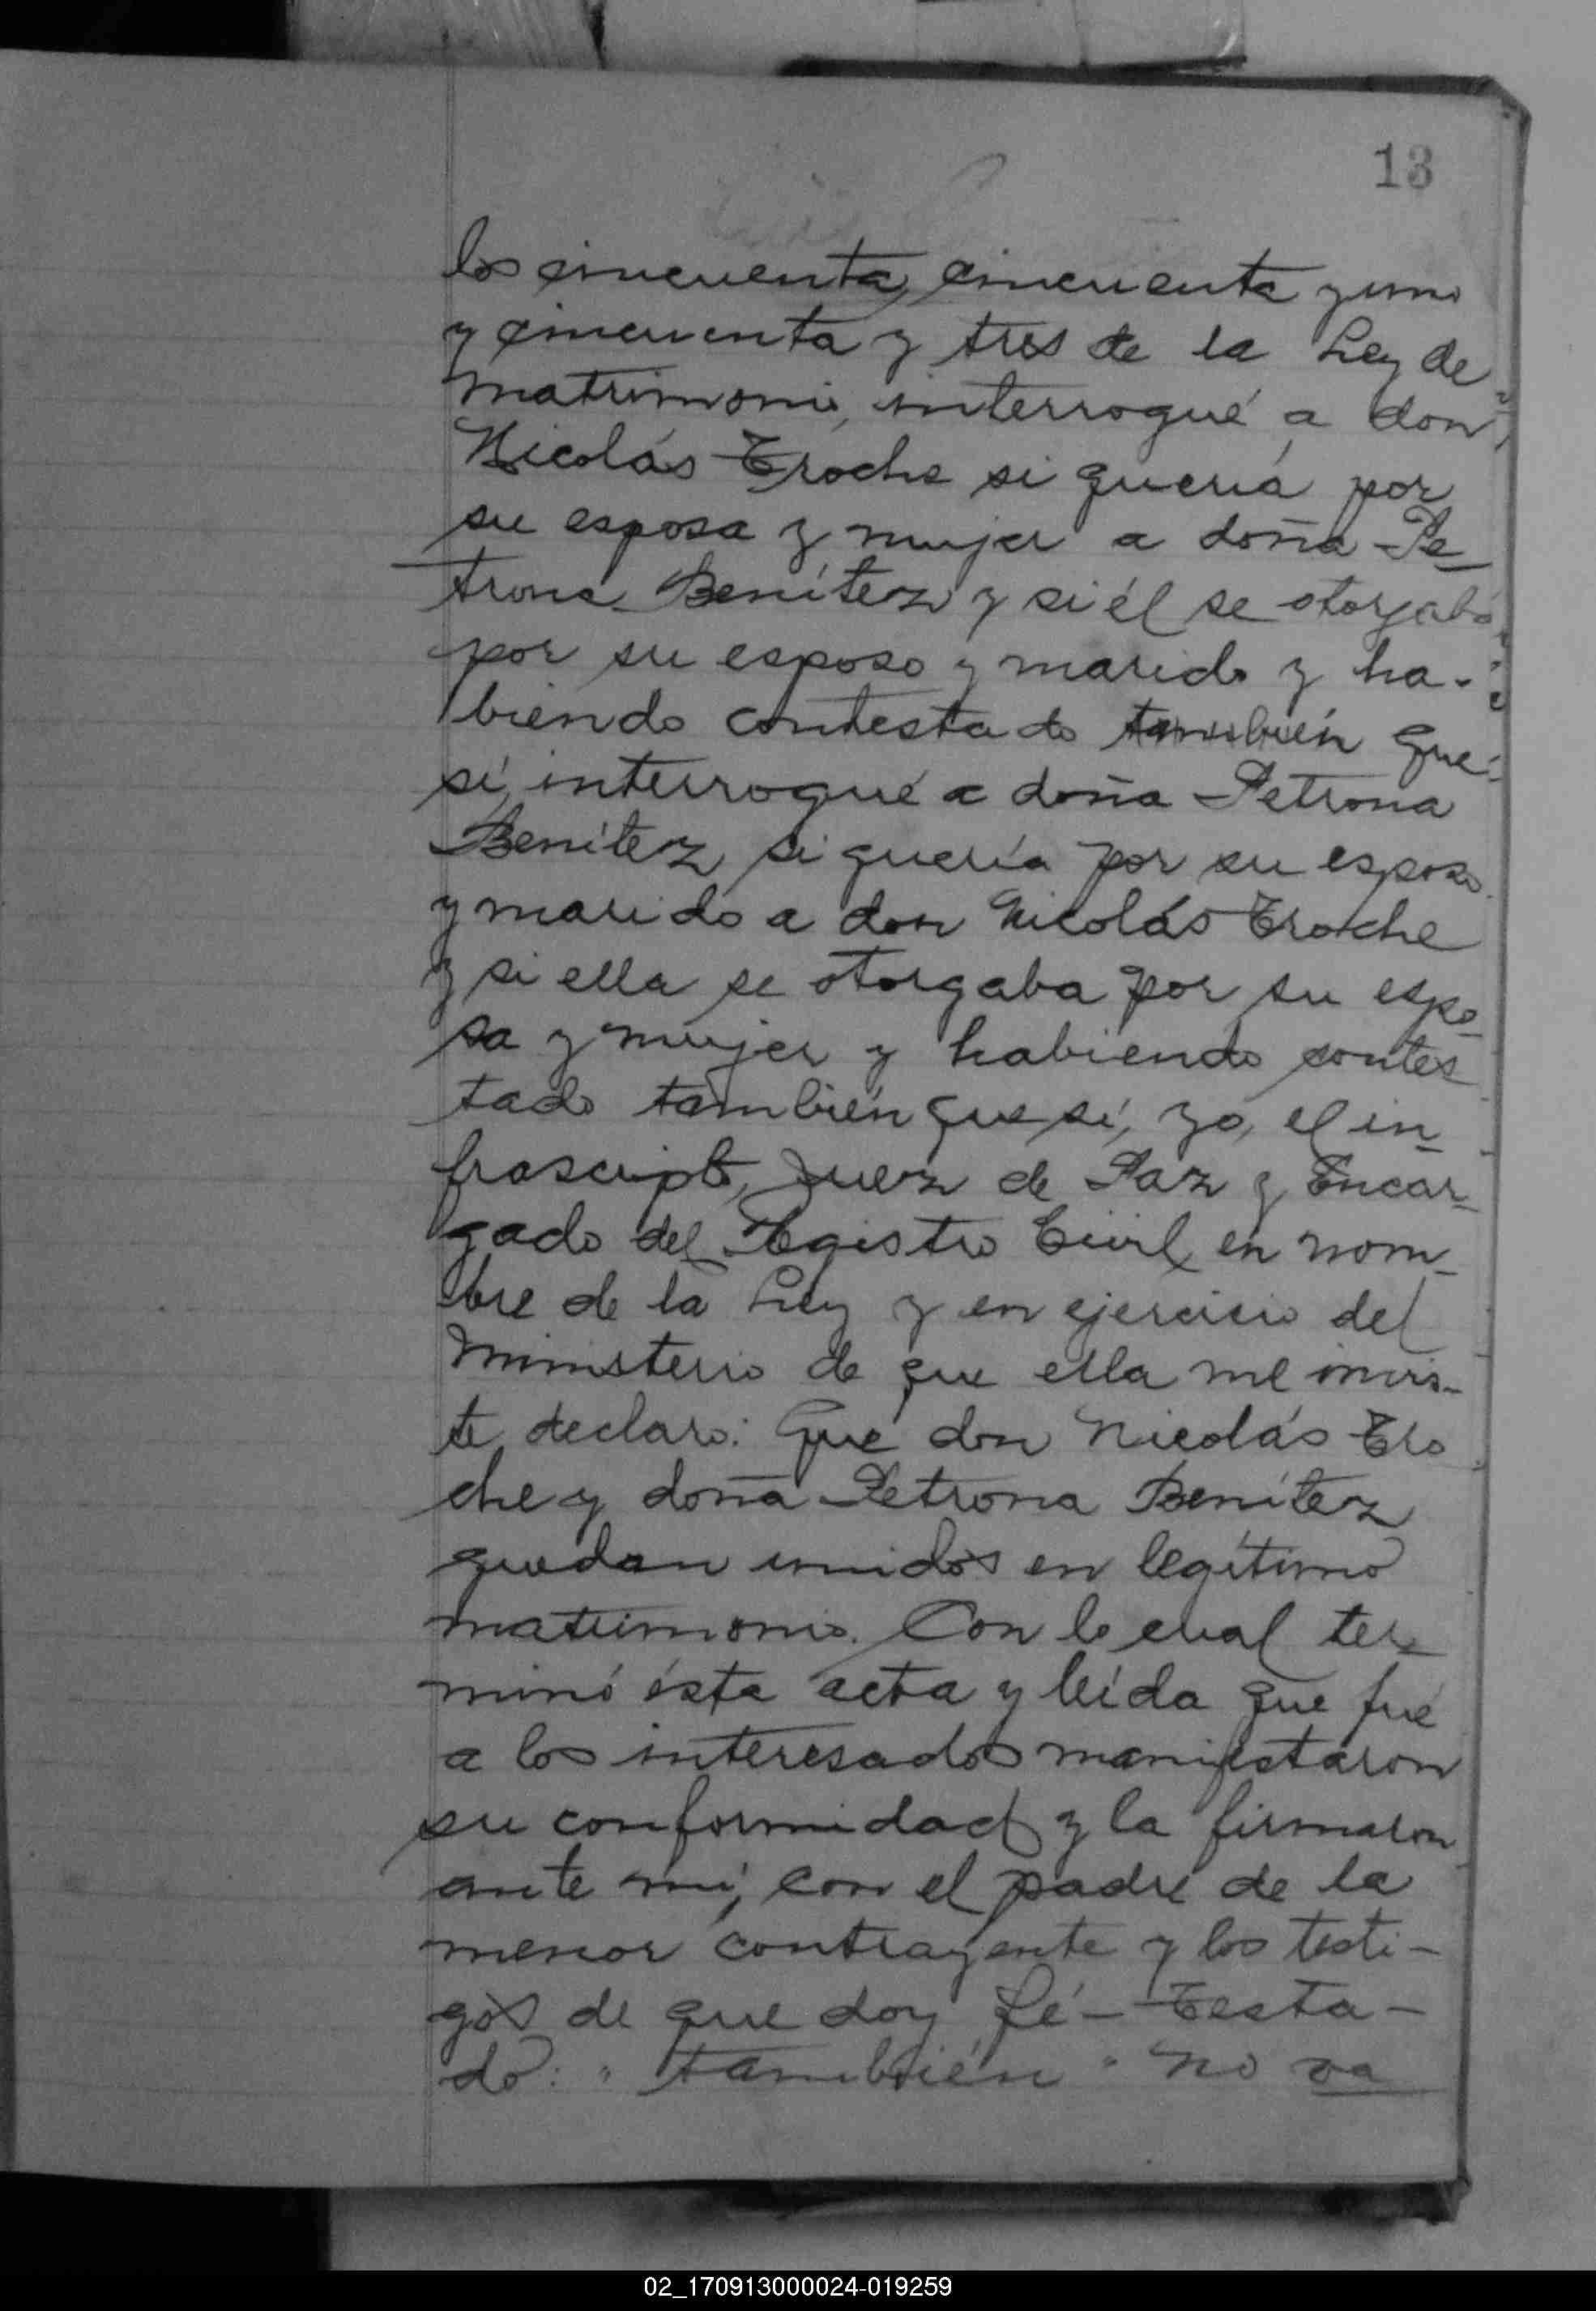 13
los cincuenta, cincuenta y uno
y cincuenta y tres de la Ley de
matrimonio, interrogué a don
Nicolás Troche si quería por
su esposa y mujer a doña Pe-
trona Benítez y si él se otorgaba
por su esposo y marido y ha-
biendo contestado también que
sí, interrogué a doña Petrona
Benítez si quería por su esposo
y marido a don Nicolás Troche
y si ella se otorgaba por su espo-
sa y mujer y habiendo contes-
tado también que sí, yo, el in-
frascripto, Juez de Paz y Encar-
gado del Registro Civil, en nom-
bre de la Ley y en ejercicio del
ministerio de que ella me invis-
te, declaro: Que don Nicolás Tro
che y doña Petrona Benítez
quedan unidos en legítimo
matrimonio. Con lo cual ter-
minó ésta acta y leída que fué
a los interesados manifestaron
su conformidad y la firmaron
ante mí, con el padre de la
menor contrayente y los testi-
gos de que doy fé - Testa-
do: "también" no va
02_170913000024-019259